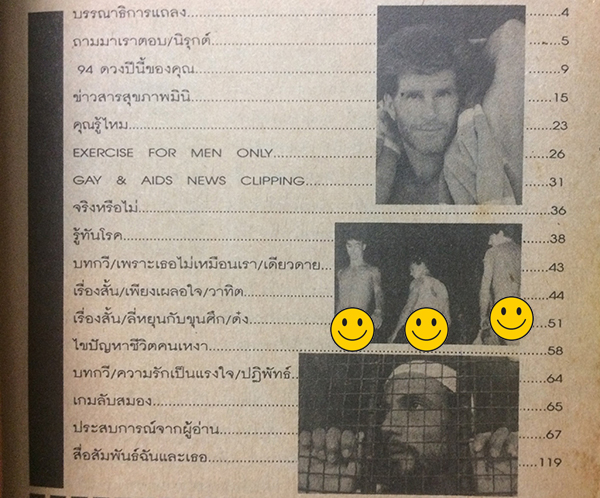 บรรณาธิการแถลง....................4
ถามมาเราตอบ/นิรุกต์....................5
94 ดวงปีนี้ของคุณ....................9
ข่าวสารสุขภาพมินิ....................15
คุณรู้ไหม....................23
EXERCISE FOR MEN ONLY....................26
GAY & AIDS NEWS CLIPPING....................31
จริงหรือไม่....................36
รู้ทันโรค....................38
บทกวี/เพราะเธอไม่เหมือนเรา/เดียวดาย....................43
เรื่องสั้น/เพียงเผลอใจ/วาทิต....................44
เรื่องสั้น/ลี่หยุนกับขุนศึก/ต๋ง....................51
ไขปัญหาชีวิตคนเหงา....................58
บทกวี/ความรักเป็นแรงใจ/ปฏิพัทธ์....................64
เกมลับสมอง....................65
ประสบการณ์จากผู้อ่าน....................67
สื่อสัมพันธ์ฉันและเธอ....................119